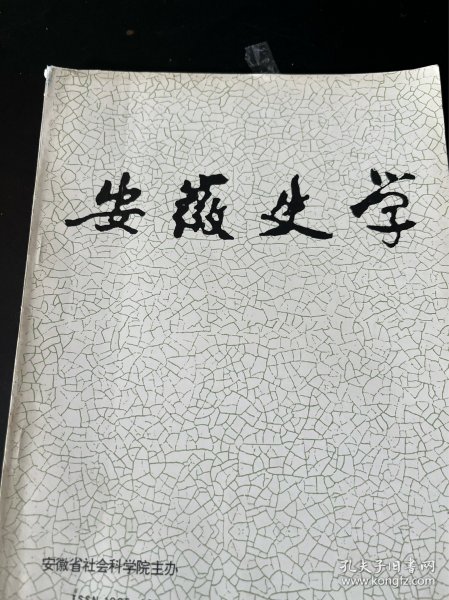 安徽史学
安徽省社会科学院主办
ISSN
孔夫子旧书网
www.kongfz.com